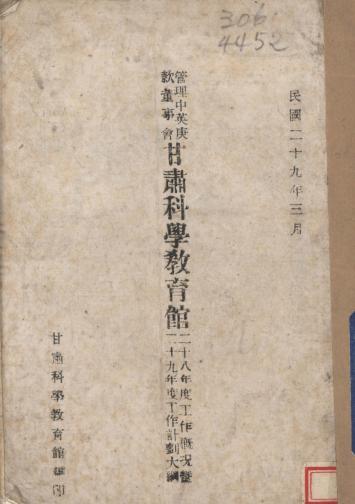 306
4452
民國二十九年三月
管理中英庚
款董事會
甘肅科學教育館
二十八年度工作概況暨
二十九年度工作計劃大綱
甘肅科學教育館編印